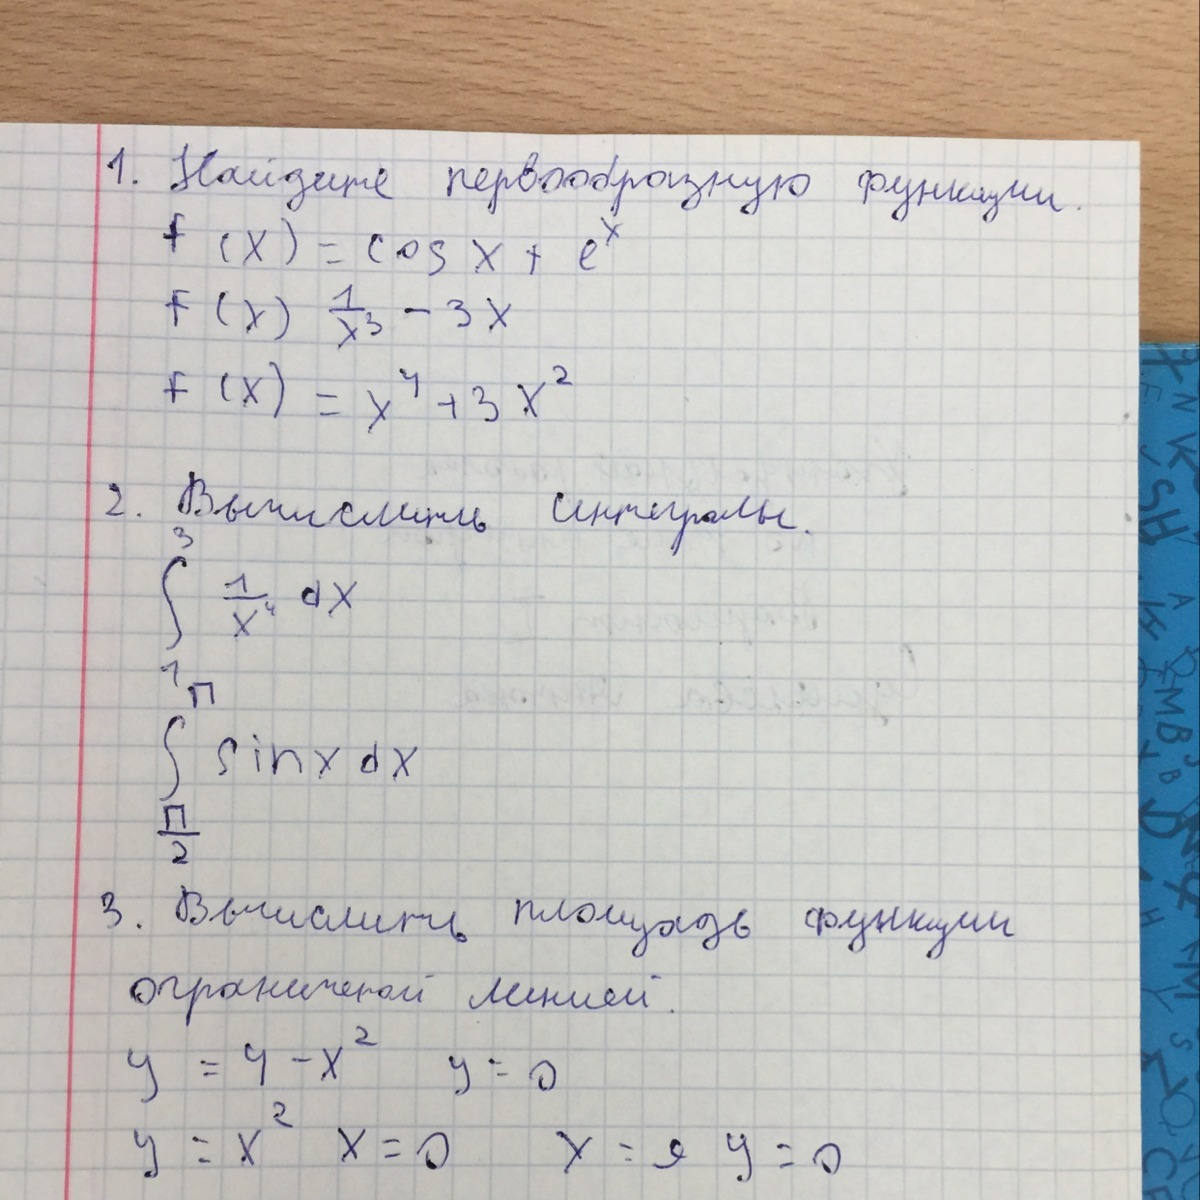 1. Найдите первообразную функции.
f (x) = cos x + e^x
f (x) 1/x^3 - 3x
f (x) = x^4 + 3x^2
2. Вычислить интегралы.
∫_1^3 1/x^4 dx
∫_{π/2}^π sin x dx
3. Вычислить площадь функции
ограниченой линией.
y = 4 - x^2 y = 0
y = x^2 x = 0 x = y = 0